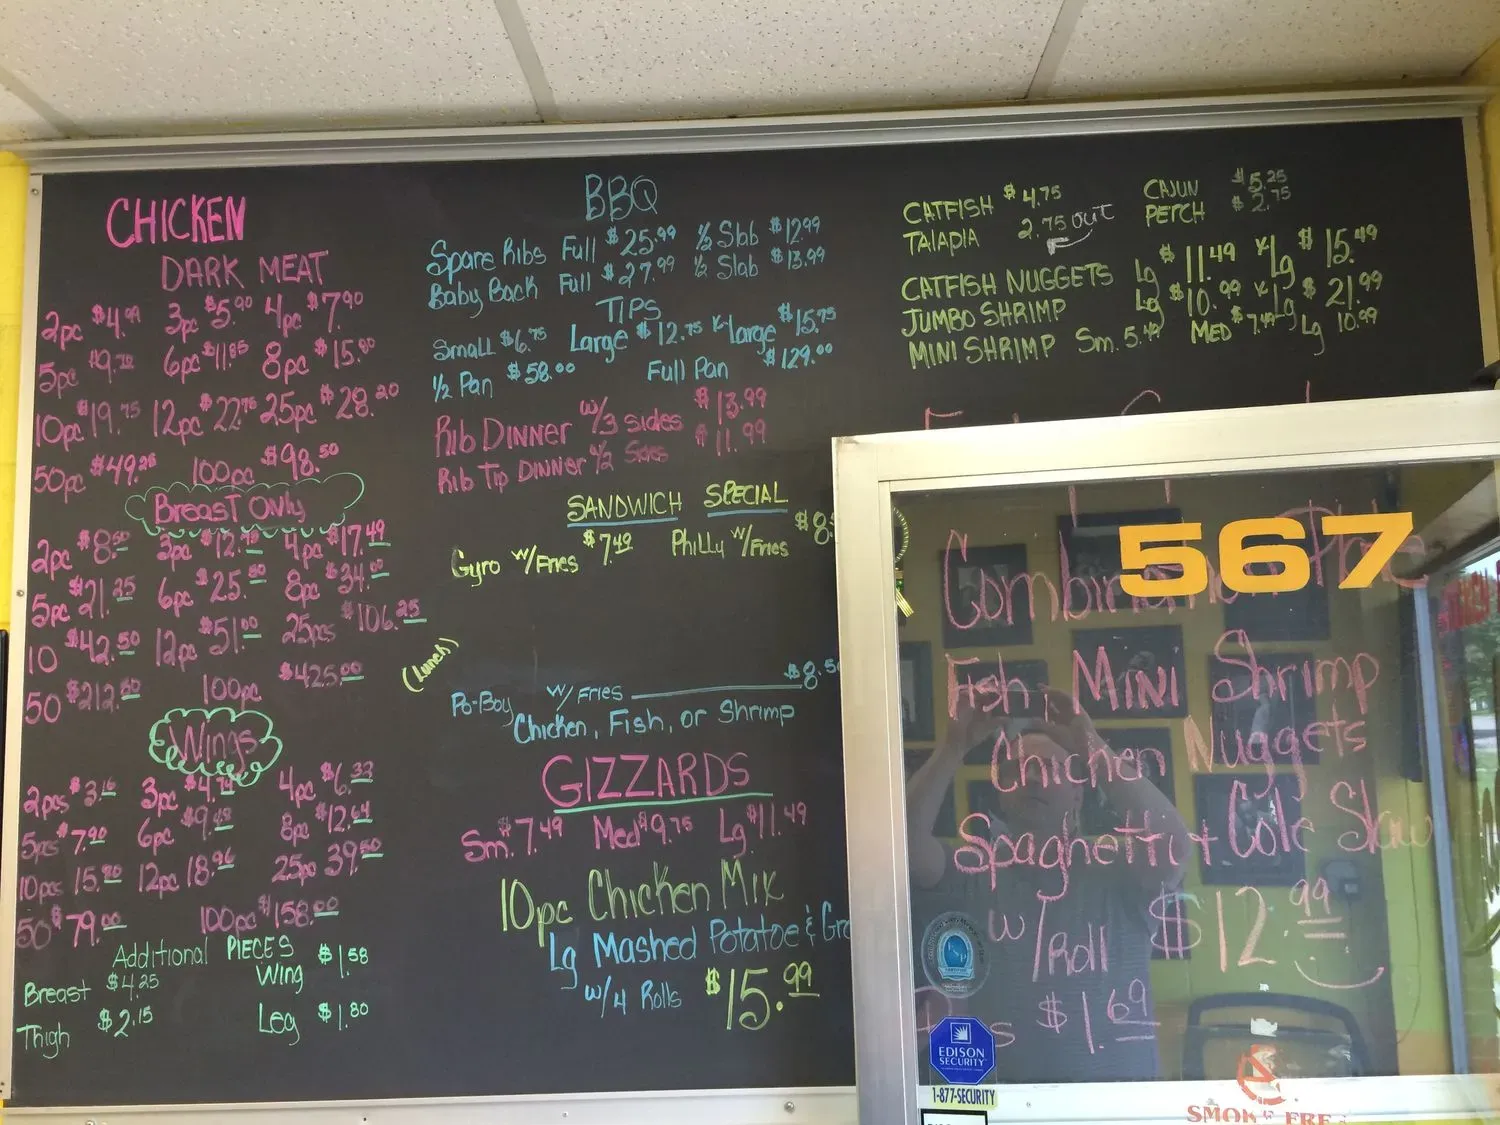 CHICKEN
DARK MEAT
2pc $4.99 3pc $5.90 4pc $7.90
5pc $9.70 6pc $11.85 8pc $15.80
10pc $19.75 12pc $22.75 25pc $28.20
50pc $49.25 100pc $98.50
Breast Only
2pc $8.50 3pc $12.79 4pc $17.49
5pc $21.25 6pc $25.50 8pc $34.00
10 $42.50 12pc $51.00 25pcs $106.25
50 $212.50 100pc $425.00
Wings
2pcs $3.16 3pc $4.74 4pc $6.33
5pcs $7.90 6pc $9.48 8pc $12.64
10pcs 15.80 12pc 18.96 25pc 39.50
50 $79.00 100pc $158.00
Additional PIECES
Breast $4.25 Wing $1.58
Thigh $2.15 Leg $1.80
BBQ
Spare Ribs Full $25.99 1/2 Slab $12.99
Baby Back Full $27.99 1/2 Slab $13.99
TIPS
Small $6.75 Large $12.75 X-Large $15.75
1/2 Pan $58.00 Full Pan $129.00
Rib DINNER w/3 sides $13.99
Rib Tip DINNER w/2 Sides $11.99
SANDWICH SPECIAL
Gyro w/Fries $7.49 Philly w/Fries $8.
(Lunch)
Po-Boy w/ Fries $8.50
Chicken, Fish, or Shrimp
GIZZARDS
Sm. $7.49 Med $9.75 Lg $11.49
10pc Chicken Mix
Lg Mashed Potatoe & Gra
w/4 Rolls $15.99
CATFISH $4.75 CAJUN $5.25
TALAPIA 2.75 out PERCH $2.75
CATFISH NUGGETS Lg $11.49 X-Lg $15.49
JUMBO SHRIMP Lg $10.99 X-Lg $21.99
MINI SHRIMP Sm. 5.49 MED $7.49 Lg 10.99
567
Combination Plate
Fish, Mini Shrimp
Chicken Nuggets
Spaghetti + Cole Slaw
w/Roll $12.99
$1.69
EDISON
SECURITY
1-877-SECURITY
SMOKE FREE